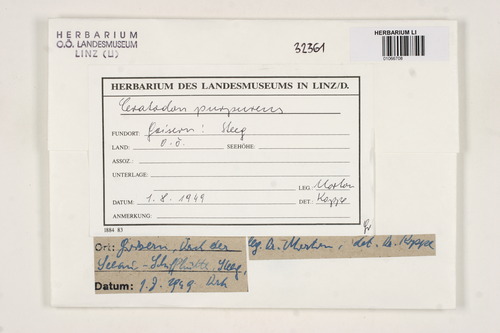 HERBARIUM
O.Ö. LANDESMUSEUM
LINZ (LI)
32361
HERBARIUM LI
01066708
HERBARIUM DES LANDESMUSEUMS IN LINZ/D.
Ceratodon purpureus
FUNDORT: Goisern: Steeg
LAND: O.Ö. SEEHÖHE:
ASSOZ.:
UNTERLAGE:
LEG.: Morton
DATUM: 1.8.1949 DET.: Koppe
ANMERKUNG:
1884 83
Ort: Goisern, der
Steeg,
Datum: 1.8.1949
leg. Dr. Morton, det. Dr. Koppe